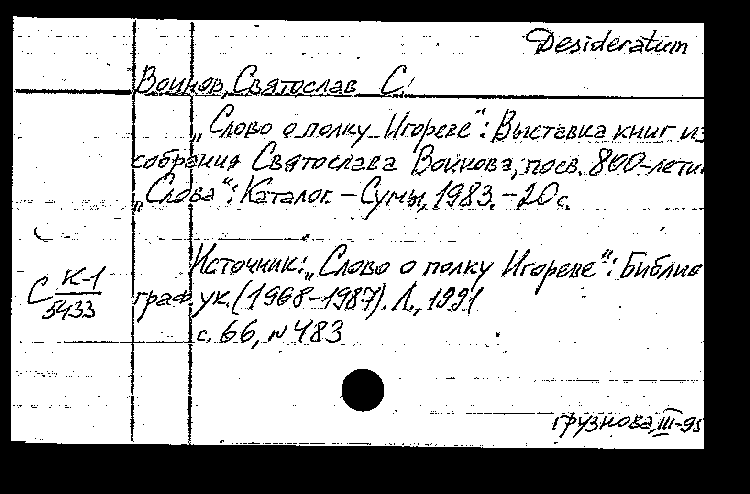 Desideratum
Воинов, Святослав С.
„Слово о полку Игореве“: Выставка книг из
собрания Святослава Воинова, посв. 800-лети
„Слова“: Каталог. – Сумы, 1983. – 20 с.
Источник: „Слово о полку Игореве“: Библио
граф. ук. (1968–1987). Л., 1991
с. 66, N 483
С К-1
5433
грузнова, III-95